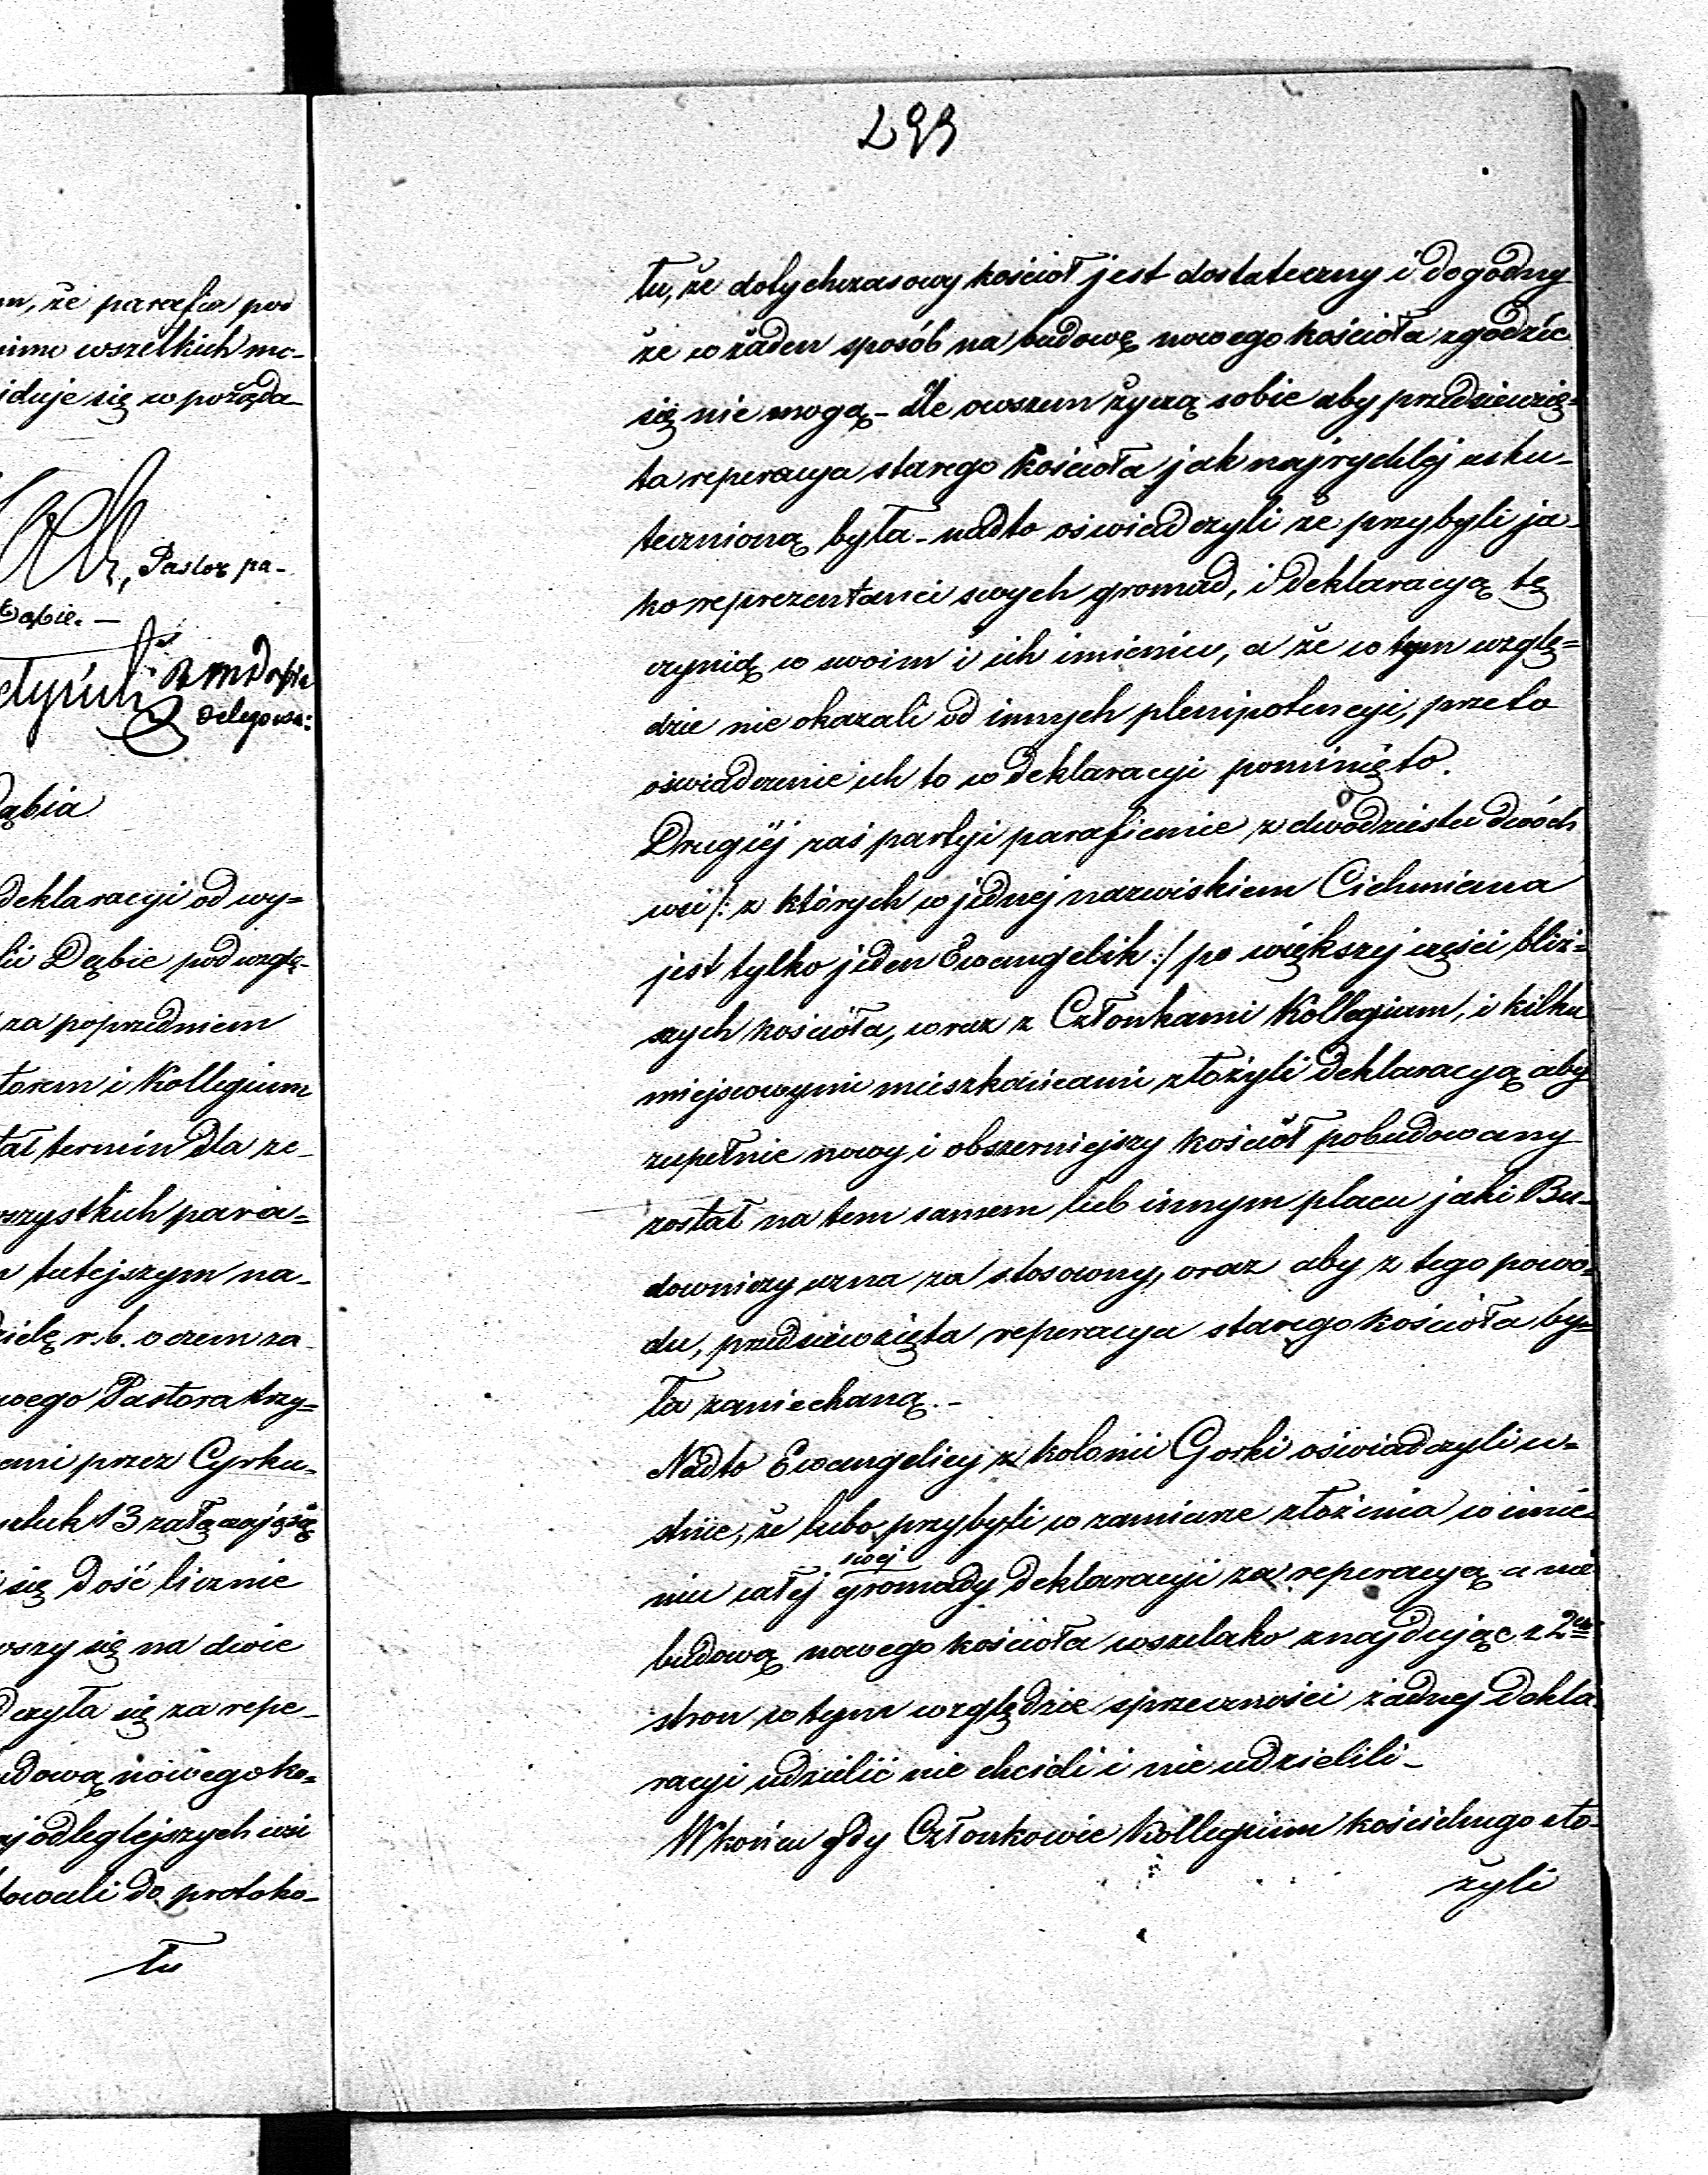 m, że parafia pod
nimo wszelkich mo-
jduje się w pożąda
Pastor pa-
Dąbie. —
Delegowa:
Dąbia
deklaracyi od wy=
lii Dąbie pod wzglę-
za poprzedniem
torem i Kollegium
tał termin dla ze-
wszystkich para=
tutejszym na-
dzielę r. b. o czem za-
wego Pastora trzy=
ami przez Cyrku-
sztuk 13 załączają się
się dość licznie
wszy się na dwie
dczyła się za repe-
udową nowego ko=
najodleglejszych wsi
towali do protoko-
łu
293
łu, że dotychczasowy kościoł jest dostateczny i dogodny
że w żaden sposób na budowę nowego kościoła zgodzić
się nie mogą - Ale owszem życzą sobie aby przedsiewzię=
ta reperacya starego kościoła jak najrychlej usku-
teczniona była - nadto oświadczyli że przybyli ja-
ko reprezentanci swych gromad, i deklaracyą tę
czynią w swoim i ich imieniu, a że w tym wzglę=
dzie nie okazali od innych plenipotencyi, przeto
oświadczenie ich to w deklaracyi pominięto.
Drugiéj zaś partyi parafienie z dwódziestu dwóch
wsi /: z których w jednej nazwiskiem Cichmiana
jest tylko jeden Ewangelik :/ po większej części bliż=
szych kościoła, wraz z Członkami Kollegium, i kilku
miejscowymi mieszkańcami złożyli deklaracyą aby
zupełnie nowy i obszerniejszy kościół pobudowany
został na tem samem lub innym placu jaki Bu-
downiczy uzna za stosowny, oraz aby z tego powo=
du, przedsiewzięta reperacya starego kościoła by=
ła zaniechaną. -
Nadto Ewangelicy z kolonii Gorki oświadczyli u=
stnie, że lubo przybyli w zamiarze złożenia w imie
niu całej swej gromady deklaracyi za reperacyą a nie
budową nowego kościoła wszelako znajdując z 2ch
stron w tym względzie sprzeczności żadnej dekla
racyi udzielić nie chcieli i nie udzielili -
W końcu gdy Członkowie Kollegium kościelnego zło-
żyli